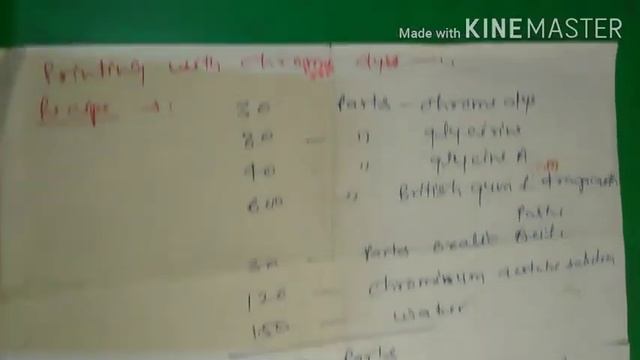 Made with KINEMASTER
Printing with chrome dyes -:
Recipe -: 30 Parts - chrome dye
30 - " glycerine
40 - " glycine A
600 " British gum &
Paste
30 - Parts Acid
120 - chromium acetate solution
150 - water
Parts